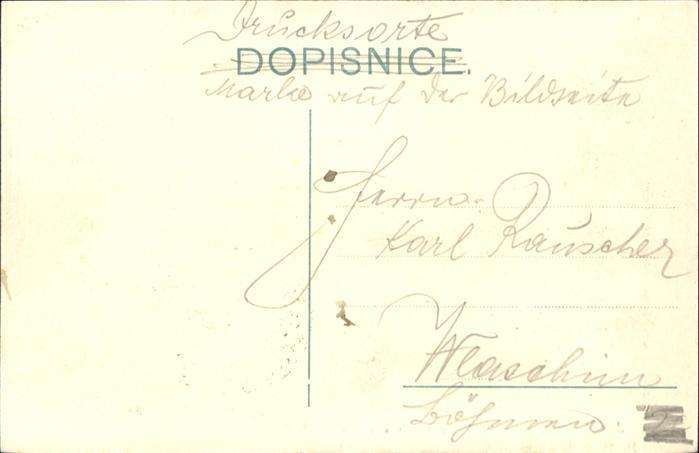 Drucksorte
DOPISNICE.
Marke auf der Bildseite
Herrn
Karl Rauscher
Wlaschim
Böhmen